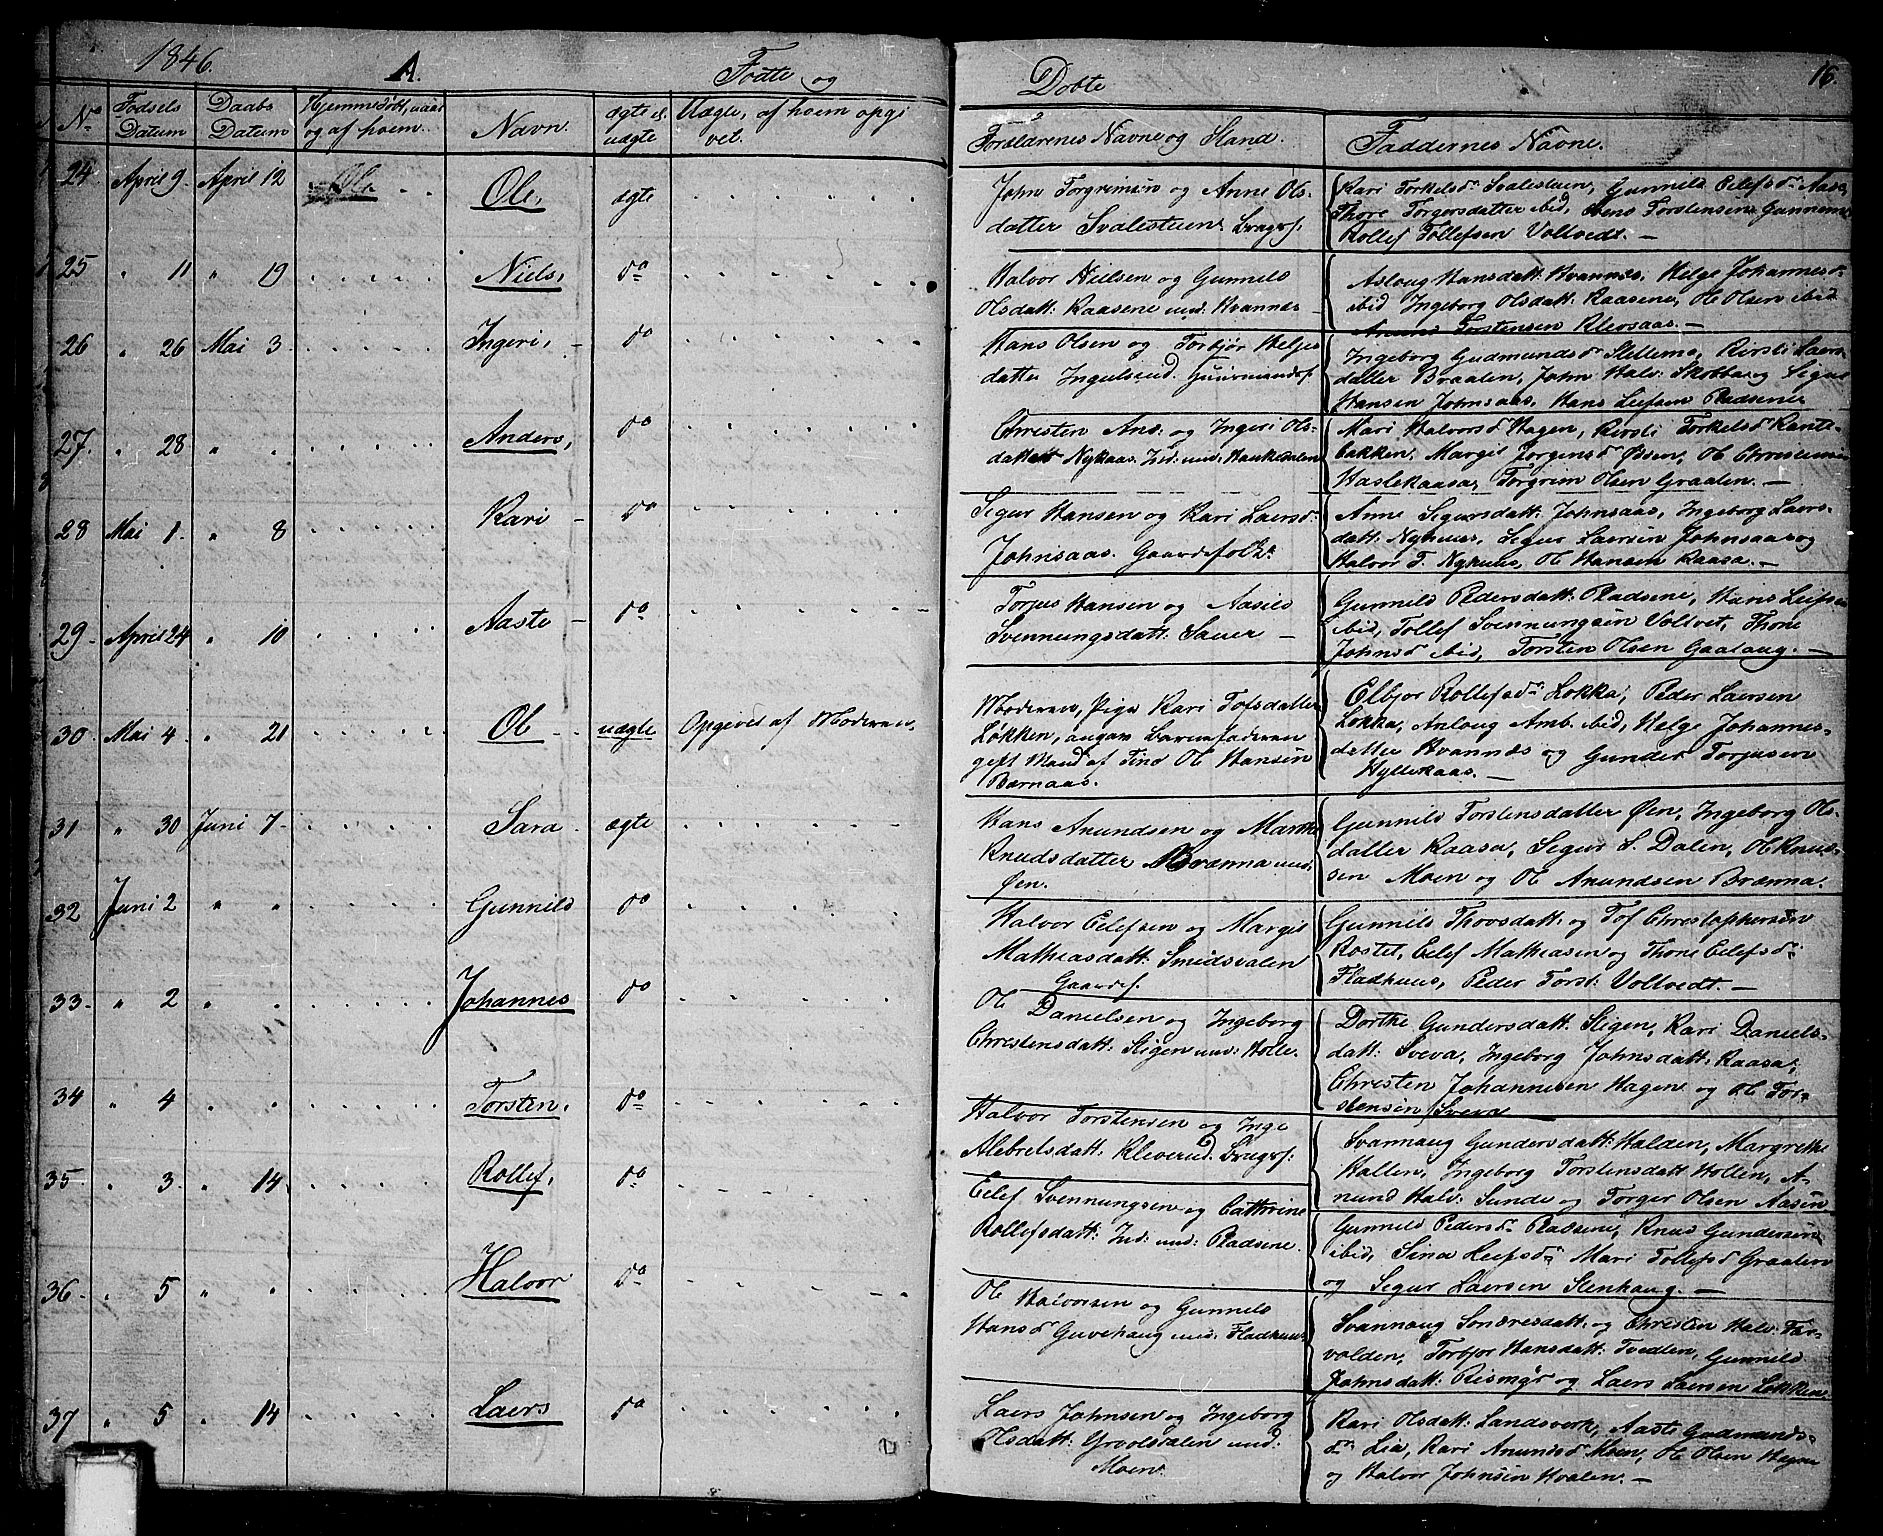 1846. A. Födte og Döbte 16.
No Födsels Datum Daabs Datum Hjemmedöbt, naar og af hvem. Navn. ægte el. uægte Uægte, af hvem opgivet. Forældrenes Navne og Stand. Faddernes Navne.
24 April 9. April 12 Ole, ægte
John Torgrimsen og Anne Ols-
datter Svalesteen. Brugsf.
Kari Torkelsd. Svalesteen, Gunnild Eilefsd. Aase,
Thore Torgersdatter ibid, Svend Torstensen Gunneme
Rollef Tollefsen Voltvedt. —
25 " 11 " 19 Niels, do
Halvor Nielsen og Gunnild
Olsdatt: Kaasene und: Hvannes
Aslaug Hansdatt: Hvannes, Helge Johannesd.
ibid Ingeborg Olsdatt: Kaasene, Ole Olsen ibid
Anund Torstensen Klevsaas. —
26 " 26 Mai 3. Ingeri, — do
Hans Olsen og Torbjør Helges
datter Ingulsrud. Gaardmandsf.
Ingeborg Gudmundsd. Stillema, Kirsti Laers
datter Braaten, John Halv: Skobba og Segur
Hansen Johnsaas, Hans LeifsenRadsene
27. " 28 " " Anders, do
Christen And: og Ingeri Ols-
datter Nykaas. Ind: und: Haukedalen
Mari Halvorsd. Hagen, Kirsti Torkelsd.
bakken, Margit Jorgensd. Øien, Ole Christensen
Haslekaasa, Torgrim Olsen Graaten. —
28 Mai 1. " 8 Kari — do
Segur Hansen og Kari Laersd:
Johnsaas. Gaardsfolk.
Anne Segursdatt: Johnsaas, Ingeborg Laers-
datt: Nyhuus, Segur Laersen Johnsaas og
Halvor T. Nyhuus, Ole Hansen Kaasa. —
29 April 24 " 10 Aaste — do
Torjus Hansen og Aasild
Svennungsdatt: Sauer —
Gunnild Pedersdatt: Radsene, Hans Leifsen
ibid, Tollef Svennungsen Voltvet, Thone
Johnsd. ibid, Torsten Olsen Gaalaug. —
30. Mai 4. " 21 Ole uægte Opgivet af Moderen.
Moderen, Pige Kari Tofsdatter
Løkken, angav Barnefaderen
gift Mand af Tind Ole Hansen
Bernaas.
Elbjor Rollefsd. Løkka, Peder Laersen
Løkka, Anlaug Amb. ibid, Helge Johannes-
datter Hvannes og Gunder Torjusen
Hyllekaas. —
31 " 30 Juni 7. Sara ægte
Hans Anundsen og Marthe
Knudsdatter Brænna und:
Øen.
Gunnild Torstensdatter Øen, Ingeborg Ols-
datter Kaasa, Segur S. Dalen, Ole Knud-
sen Moen og Ole Anundsen Brænna.
32 Juni 2 " " Gunnild do
Halvor Eilefsen og Margit
Mathiasdatt: Smedsdalen
Gaardsf.
Gunnild Thovsdatt: og Tof Christophersen
Rostet, Eilef Mathiasen og Thone Eilefsd.
Fladhuus, Peder Torst: Voltvedt. —
33. " 2 " Johannes do
Ole Danielsen og Ingeborg
Christensdatt: Stigen und: Holte.
Dorthe Gundersdatt: Stigen, Kari Daniels-
datt: Sveva, Ingeborg Johnsdatt: Kaasa,
Christen Johannesen Hagen og Ole Tor-
stensen Sveva —
34 " 4 " Torsten, do
Halvor Torstensen og Inge
Alebretsdatt: Kleverud. Brugsf.
Svannaug Gundersdatt: Halden, Margrethe
Hallen, Ingeborg Torstensdatt Hollen, A-
nund Halv: Sunde og Torger Olsen Aasen
35 " 3. " 14. Rollef, do
Eilef Svennungsen og Cathrine
Rollefsdatt: Ind: und: Radsene.
Gunnild Pedersd. Radsene, Knud Gundersen
ibid, Sina Leifsd. Mari Tollefsd Graaten
og Segur Laersen Stenhaug. —
36. " 5 " Halvor do
Ole Halvorsen og Gunnild
Hansd. Guvehaug und: Fladhuus
Svannaug Sondresdatt: og Christen Halv: Tar-
volden, Torbjor Hansdatt: Tvedten, Gunnild
Johnsdatt: Rismyr og Laers Laersen Løkken
37 " 5 " 14 Laers do
Laers Johnsen og Ingeborg
Olsdatt: Grovlsdalen und:
Moen.
Kari Olsdatt: Landsverk, Aaste Gudmunds-
d. Lia, Kari Anundsd Moen, Ole Olsen
og Halvor Johnsen Hvalen. —